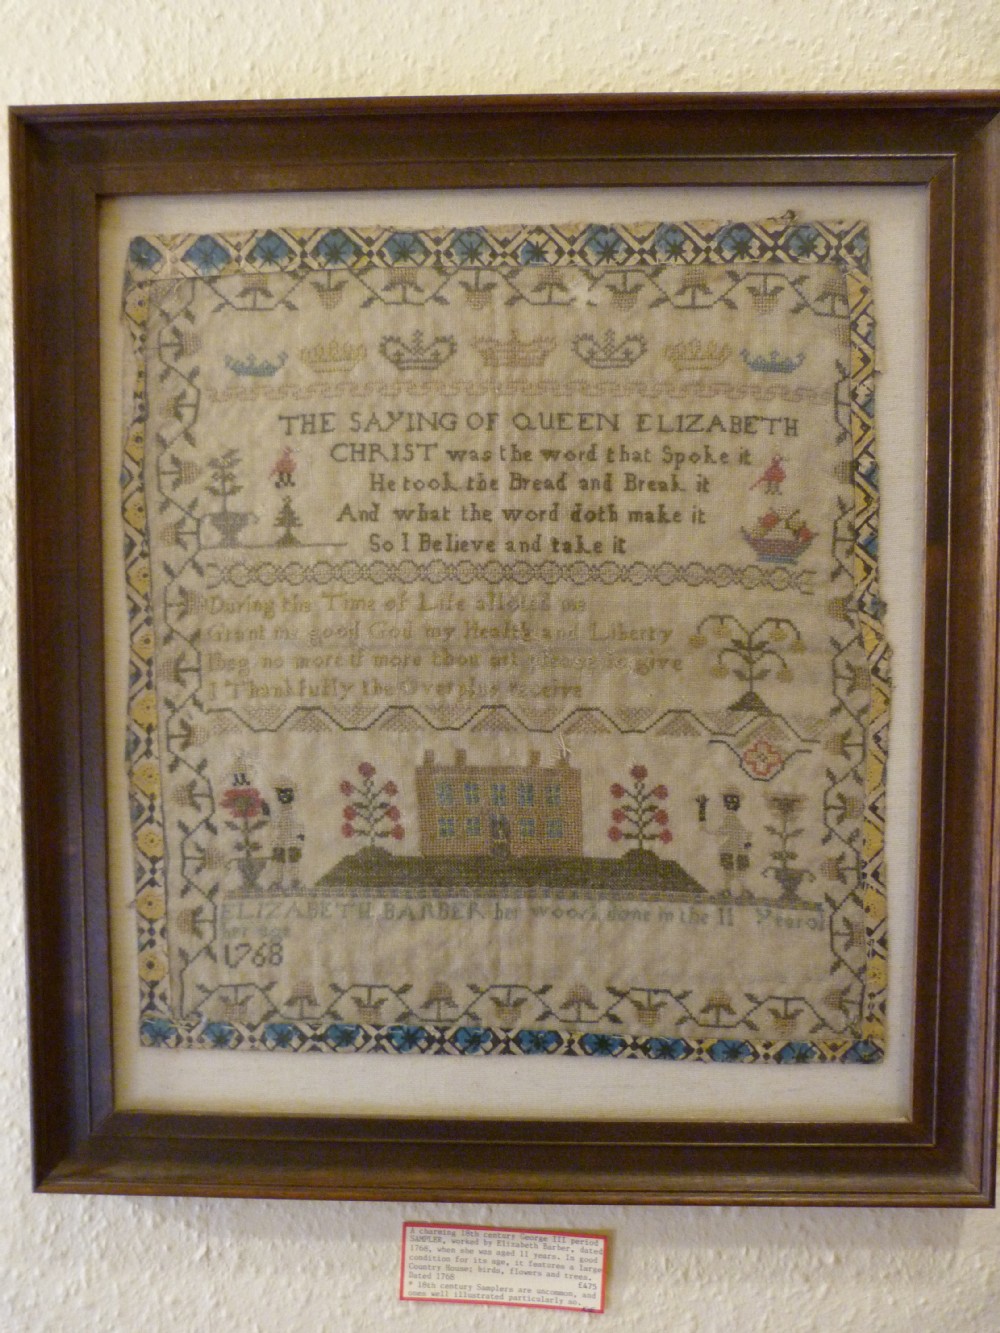 THE SAYING OF QUEEN ELIZABETH
CHRIST was the word that Spoke it
He took the Bread and Break it
And what the word doth make it
So I Believe and take it
During the Time of Life alloted me
Grant me good God my Health and Liberty
I beg no more if more thou art please to give
I Thankfully the Overplus receive
ELIZABETH BARBER her woork done in the 11 Year of
her age
1768
A charming 18th century George III period
SAMPLER, worked by Elizabeth Barber, dated
1768, when she was aged 11 years. In good
condition for its age, it features a large
Country House; birds, flowers and trees.
Dated 1768 £475
* 18th century Samplers are uncommon, and
ones well illustrated particularly so.